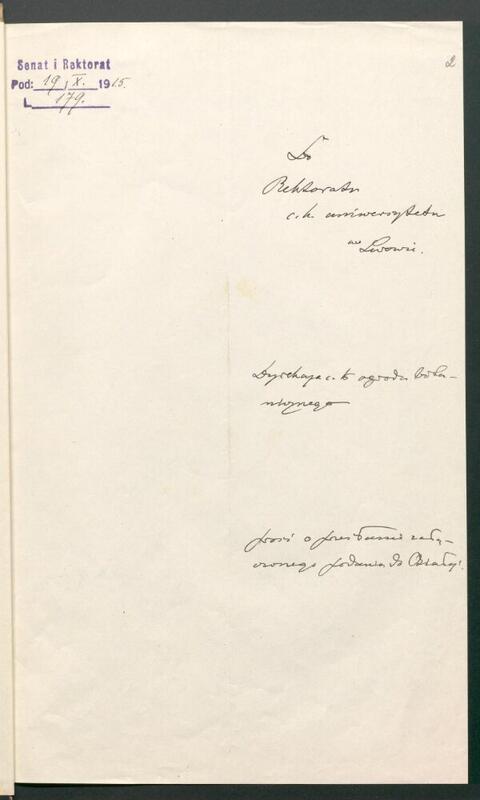 2
Senat i Rektorat
Pod: 19 / X. 1915.
L. 179.
Do
Rektoratu
c. k. uniwersytetu
we Lwowie.
Dyrekcya c. k. ogrodu bota-
nicznego
prosi o przesłanie załą-
czonego podania do